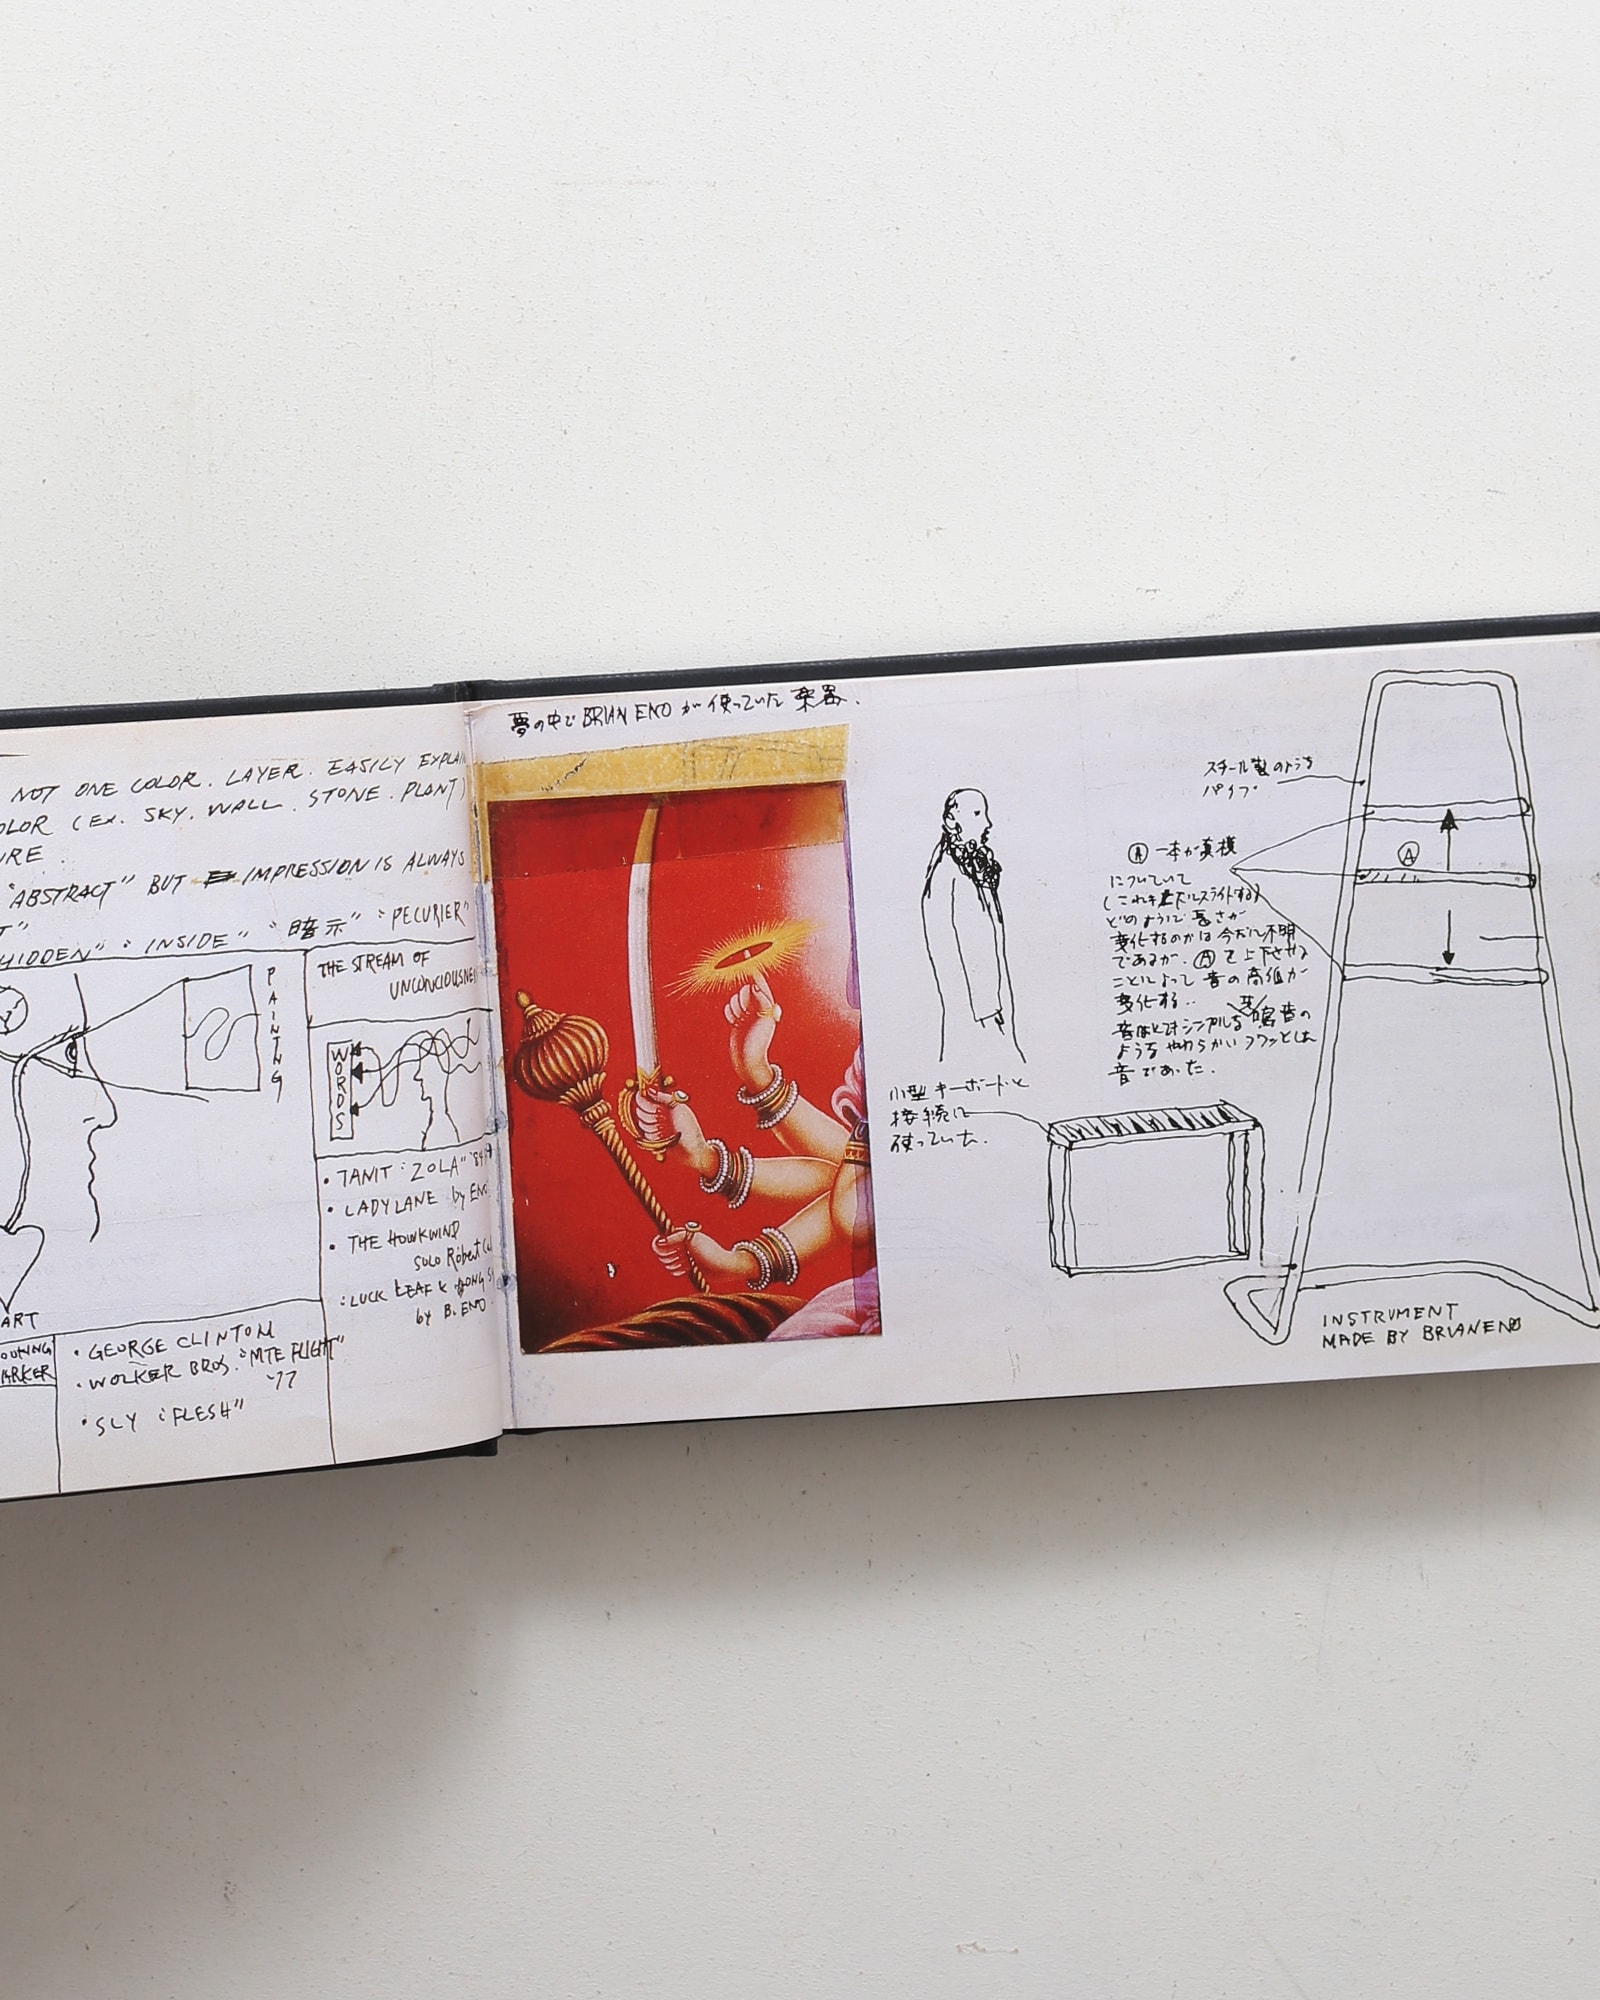 NOT ONE COLOR. LAYER. EASILY EXPLAI
OLOR (EX. SKY. WALL. STONE. PLANT)
URE.
"ABSTRACT" BUT IMPRESSION IS ALWAYS
T"
HIDDEN" "INSIDE" "暗示" "PECURIER"
PAINTING
THE STREAM OF
UNCONCIOUSNE
WORDS
• TANIT "ZOLA"
• LADY LANE by EN
• THE HOWKWIND
SOLO Robert
LUCK LEAF &
by B. ENO
ART
ARKER
• GEORGE CLINTON
• WOLKER BROS. "NITE FLIGHT"
'77
• SLY "FLESH"
夢の中で BRIAN ENO が 使っていた 楽器.
スチール製の
パイプ
Ⓐ
Ⓐ 一本が真横
についていて
どのようにして長さが
変化するのかは今だに不明
であるが. Ⓐを上下させる
ことによって 音の高低が
変化する..
ような やわらかい フワッとした
音であった.
小型キーボードと
接続して
使っていた.
INSTRUMENT
MADE BY BRIAN ENO